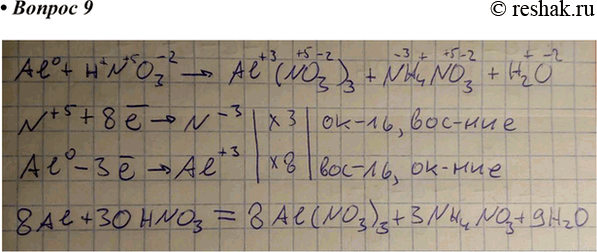 • Вопрос 9
© reshak.ru
Al⁰ + H⁺N⁺⁵O₃⁻² → Al⁺³(N⁺⁵O₃⁻²)₃ + N⁻³H₄⁺N⁺⁵O₃⁻² + H₂⁺O⁻²
N⁺⁵ + 8ē → N⁻³ | x3 | ок-ль, вос-ние
Al⁰ - 3ē → Al⁺³ | x8 | вос-ль, ок-ние
8Al + 30HNO₃ = 8Al(NO₃)₃ + 3NH₄NO₃ + 9H₂O